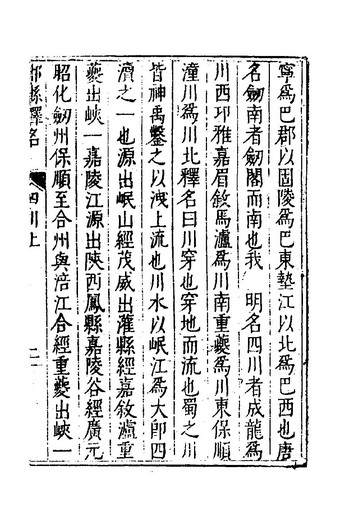 寧爲巴郡以固陵爲巴東墊江以北爲巴西也唐
名劒南者劒閣而南也我　明名四川者成龍爲
川西邛雅嘉眉敘馬瀘爲川南重夔爲川東保順
潼川爲川北釋名曰川穿也穿地而流也蜀之川
皆神禹鑿之以洩上流也川水以岷江爲大卽四
瀆之一也源出岷山經茂威出灌縣經嘉敘瀘重
夔出峽一嘉陵江源出陝西鳳縣嘉陵谷經廣元
昭化劒州保順至合州與涪江合經重夔出峽一
郡縣釋名
四川上